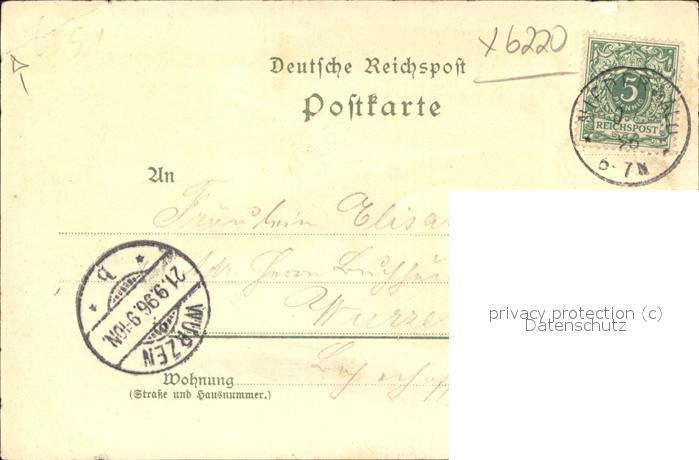 x 6220
Deutsche Reichspost
Postkarte
5
PFENNIG
REICHSPOST
96
6-7N
An
Fräulein Elisa
Adr. Herrn Buchhä
Wurze
21.9.96.9-10N.
WURZEN
Wohnung
(Straße und Hausnummer.)
privacy protection (c)
Datenschutz